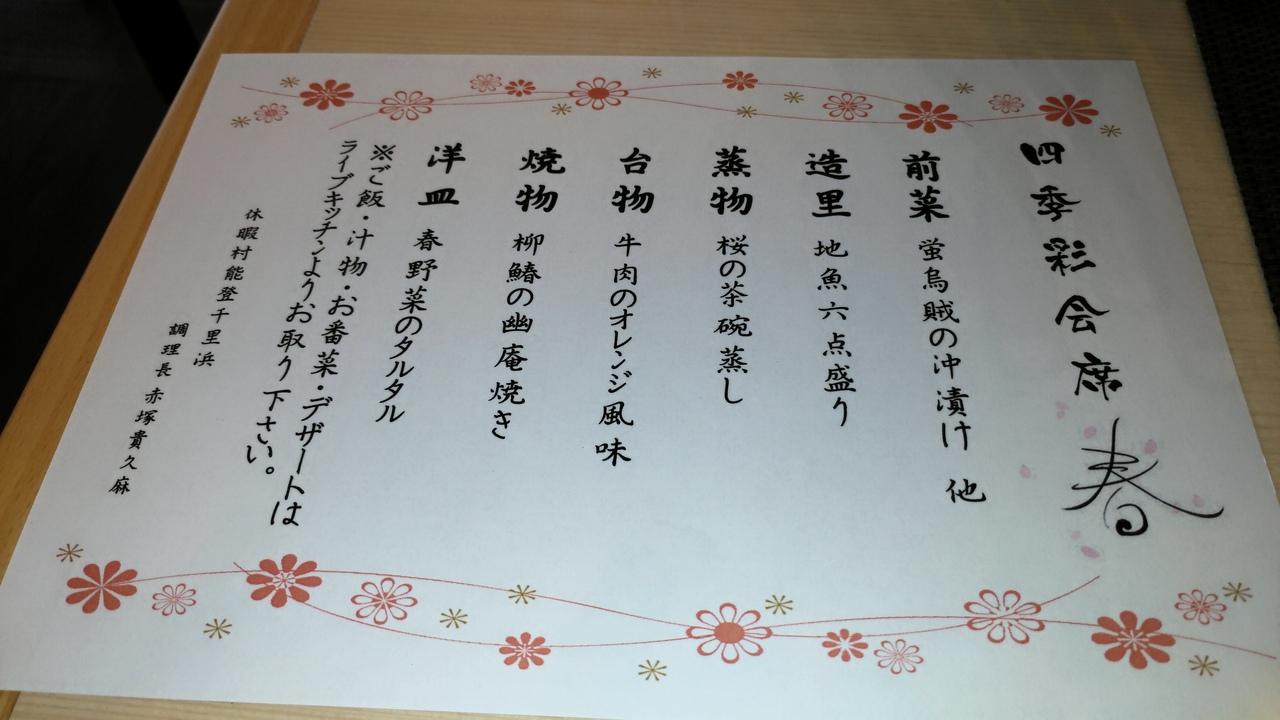 四季彩会席 春
前菜 蛍烏賊の沖漬け 他
造里 地魚六点盛り
蒸物 桜の茶碗蒸し
台物 牛肉のオレンジ風味
焼物 柳鰆の幽庵焼き
洋皿 春野菜のタルタル
※ご飯・汁物・お番菜・デザートは
ライブキッチンよりお取り下さい。
休暇村能登千里浜
調理長 赤塚貴久麻